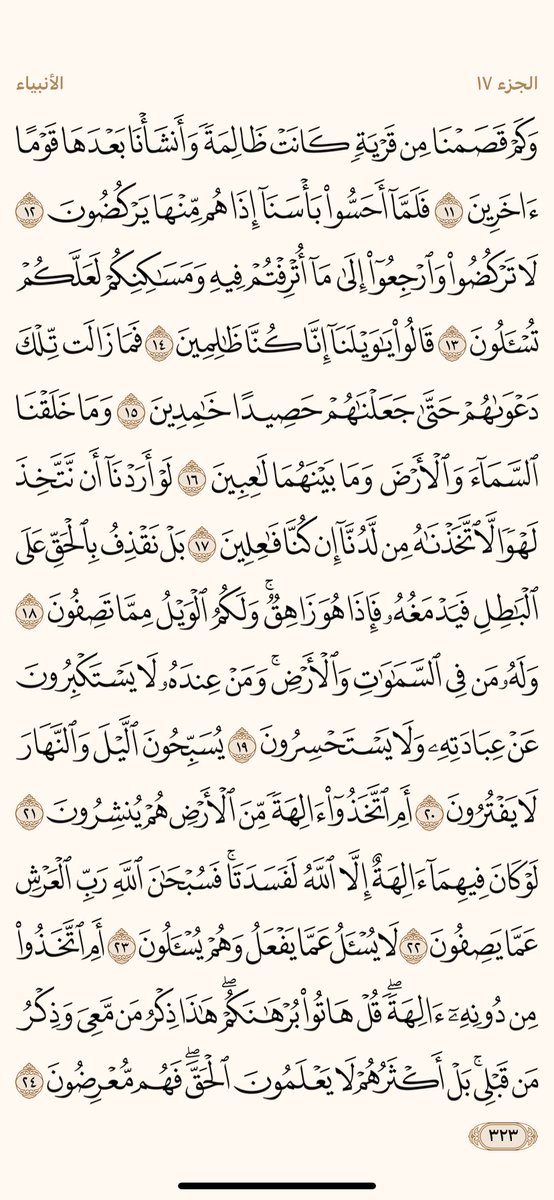 الجزء ١٧
الأنبياء
وَكَمۡ قَصَمۡنَا مِن قَرۡيَةٖ كَانَتۡ ظَالِمَةٗ وَأَنشَأۡنَا بَعۡدَهَا قَوۡمًا
ءَاخَرِينَ ١١ فَلَمَّآ أَحَسُّواْ بَأۡسَنَآ إِذَا هُم مِّنۡهَا يَرۡكُضُونَ ١٢
لَا تَرۡكُضُواْ وَٱرۡجِعُوٓاْ إِلَىٰ مَآ أُتۡرِفۡتُمۡ فِيهِ وَمَسَٰكِنِكُمۡ لَعَلَّكُمۡ
تُسۡـَٔلُونَ ١٣ قَالُواْ يَٰوَيۡلَنَآ إِنَّا كُنَّا ظَٰلِمِينَ ١٤ فَمَا زَالَت تِّلۡكَ
دَعۡوَىٰهُمۡ حَتَّىٰ جَعَلۡنَٰهُمۡ حَصِيدًا خَٰمِدِينَ ١٥ وَمَا خَلَقۡنَا
ٱلسَّمَآءَ وَٱلۡأَرۡضَ وَمَا بَيۡنَهُمَا لَٰعِبِينَ ١٦ لَوۡ أَرَدۡنَآ أَن نَّتَّخِذَ
لَهۡوٗا لَّٱتَّخَذۡنَٰهُ مِن لَّدُنَّآ إِن كُنَّا فَٰعِلِينَ ١٧ بَلۡ نَقۡذِفُ بِٱلۡحَقِّ عَلَى
ٱلۡبَٰطِلِ فَيَدۡمَغُهُۥ فَإِذَا هُوَ زَاهِقٞۚ وَلَكُمُ ٱلۡوَيۡلُ مِمَّا تَصِفُونَ ١٨
وَلَهُۥ مَن فِي ٱلسَّمَٰوَٰتِ وَٱلۡأَرۡضِۚ وَمَنۡ عِندَهُۥ لَا يَسۡتَكۡبِرُونَ
عَنۡ عِبَادَتِهِۦ وَلَا يَسۡتَحۡسِرُونَ ١٩ يُسَبِّحُونَ ٱلَّيۡلَ وَٱلنَّهَارَ
لَا يَفۡتُرُونَ ٢٠ أَمِ ٱتَّخَذُوٓاْ ءَالِهَةٗ مِّنَ ٱلۡأَرۡضِ هُمۡ يُنشِرُونَ ٢١
لَوۡ كَانَ فِيهِمَآ ءَالِهَةٌ إِلَّا ٱللَّهُ لَفَسَدَتَاۚ فَسُبۡحَٰنَ ٱللَّهِ رَبِّ ٱلۡعَرۡشِ
عَمَّا يَصِفُونَ ٢٢ لَا يُسۡـَٔلُ عَمَّا يَفۡعَلُ وَهُمۡ يُسۡـَٔلُونَ ٢٣ أَمِ ٱتَّخَذُواْ
مِن دُونِهِۦٓ ءَالِهَةٗۖ قُلۡ هَاتُواْ بُرۡهَٰنَكُمۡۖ هَٰذَا ذِكۡرُ مَن مَّعِيَ وَذِكۡرُ
مَن قَبۡلِيۚ بَلۡ أَكۡثَرُهُمۡ لَا يَعۡلَمُونَ ٱلۡحَقَّۖ فَهُم مُّعۡرِضُونَ ٢٤
٣٢٣